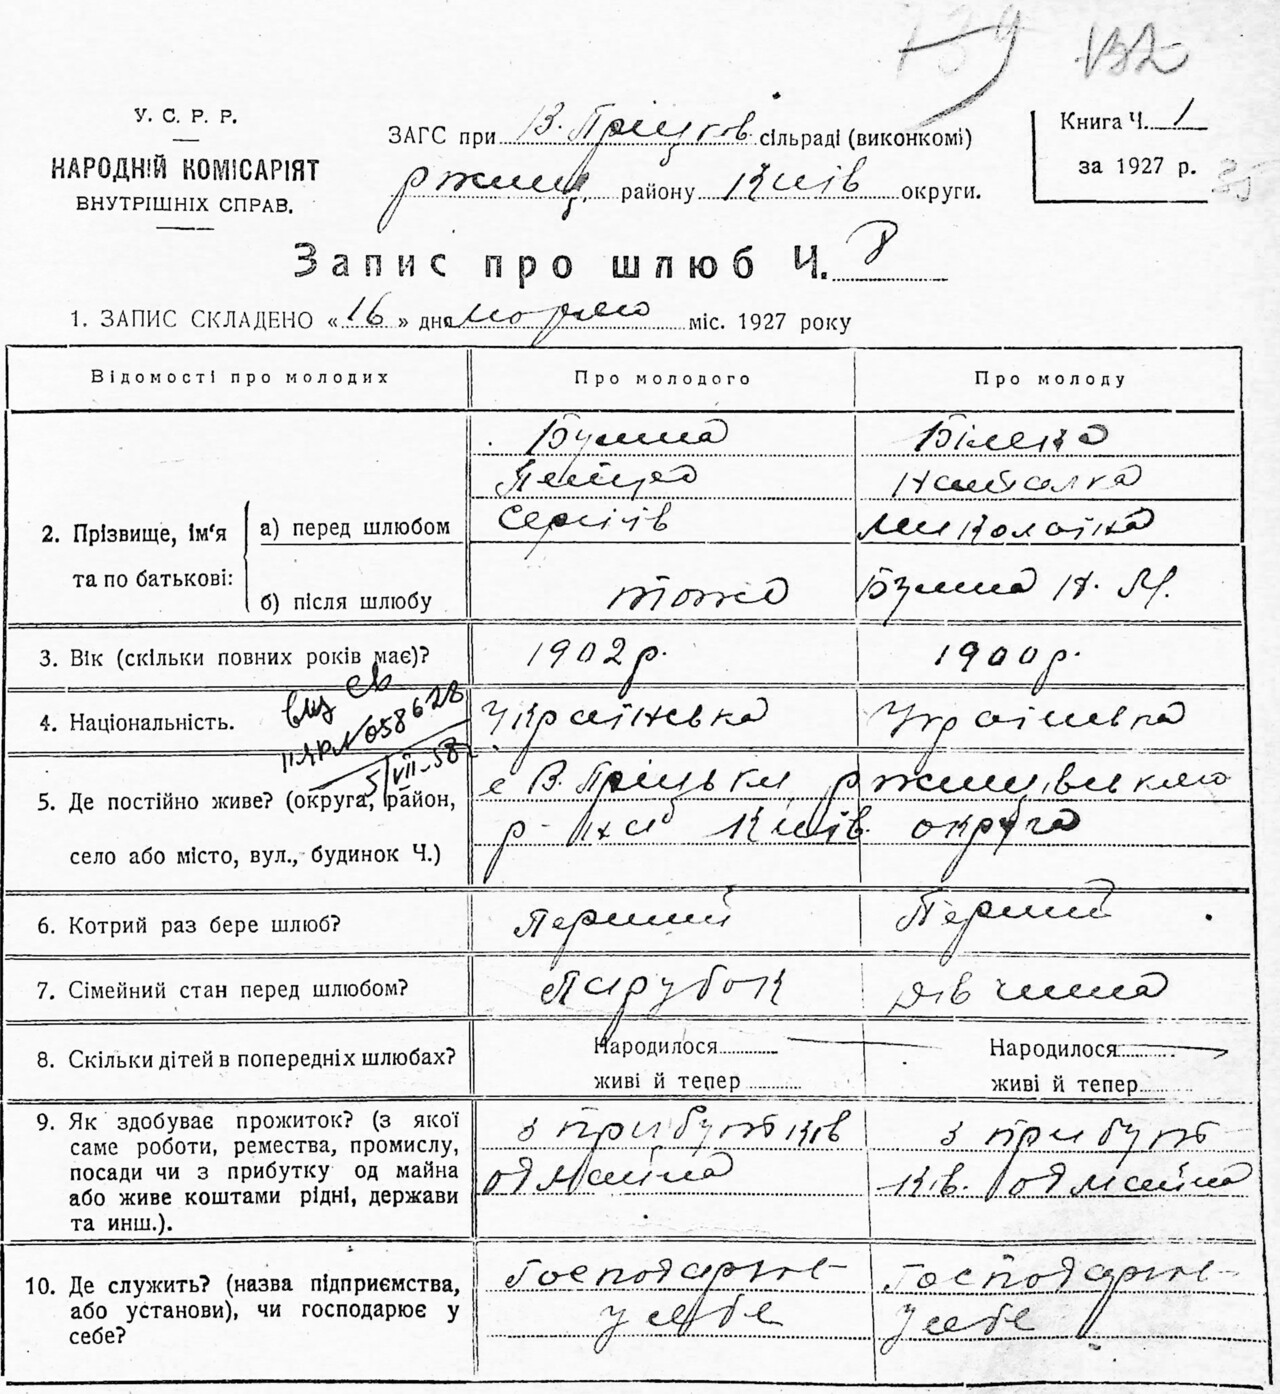 139 132
У. С. Р. Р.
НАРОДНІЙ КОМІСАРІЯТ
ВНУТРІШНІХ СПРАВ.
ЗАГС при В. Пріцков. сільраді (виконкомі)
ржищ. району Київ округи.
Книга Ч. 1
за 1927 р.
35
Запис про шлюб Ч. 8
1. ЗАПИС СКЛАДЕНО « 16 » дня марта міс. 1927 року
Відомості про молодих
Про молодого
Про молоду
2. Прізвище, ім'я та по батькові:
а) перед шлюбом
б) після шлюбу
Сергіїв
Білека
Наталка
Миколаївна
тоже
Н. М.
3. Вік (скільки повних років має)?
1902 р.
1900 р.
4. Національність.
Українська
Українська
выд св
II-ЯР № 058628
5/VII-58
5. Де постійно живе? (округа, район,
село або місто, вул., будинок Ч.)
с В. Пріцьки ржищівського
р-на Київ. округа
6. Котрий раз бере шлюб?
Перший
Перший
7. Сімейний стан перед шлюбом?
Парубок
дівчина
8. Скільки дітей в попередніх шлюбах?
Народилося
живі й тепер
Народилося
живі й тепер
9. Як здобуває прожиток? (з якої
саме роботи, ремества, промислу,
посади чи з прибутку од майна
або живе коштами рідні, держави
та инш.).
з прибутків
од майна
з прибут-
ків. од майна
10. Де служить? (назва підприємства,
або установи), чи господарює у
себе?
Господарює
у себе
Господарює
у себе